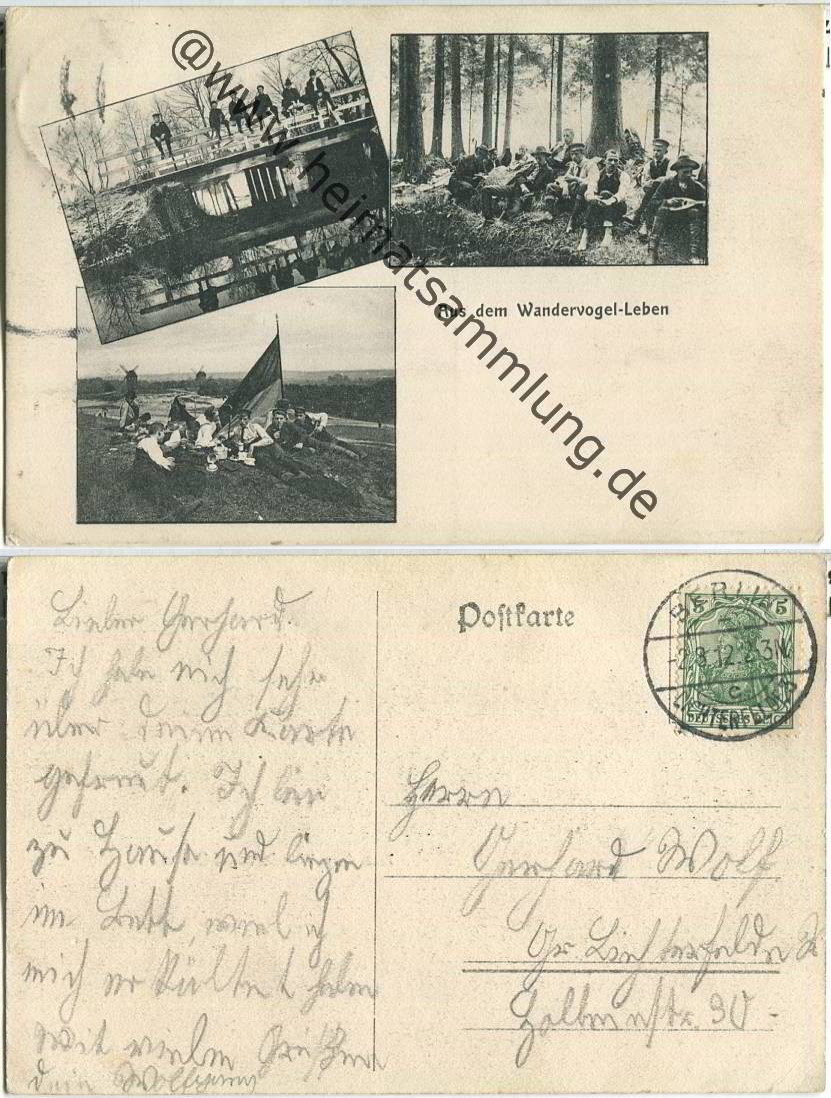 @www.heimatsammlung.de
Aus dem Wandervogel-Leben
Postkarte
BERLIN
-2.3.12.2-3N.
c
LICHTERFELDE
5 5
DEUTSCHES REICH
Lieber Gerhard.
Ich habe mich sehr
über deine Karte
gefreut. Ich bin
zu Hause und liege
im Bett, weil ich
mich erkältet habe
Mit vielen Grüßen
dein Wolfgang
Herrn
Gerhard Wolf
Gr. Lichterfelde
Holbeinstr. 30